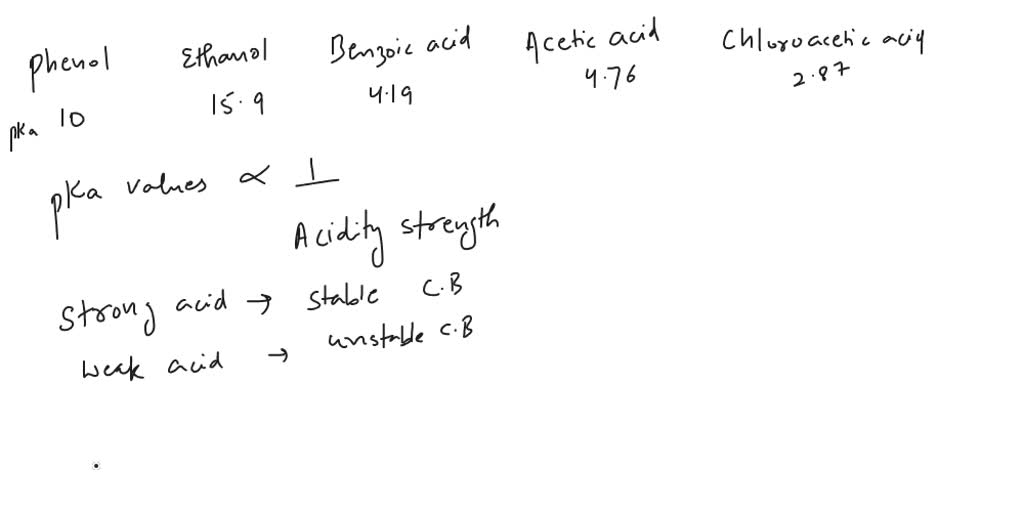 Phenol Ethanol Benzoic acid Acetic acid Chloroacetic acid
pKa 10 15.9 4.19 4.76 2.87
pKa values ∝ 1
Acidity strength
Strong acid → stable C.B
Weak acid → unstable C.B